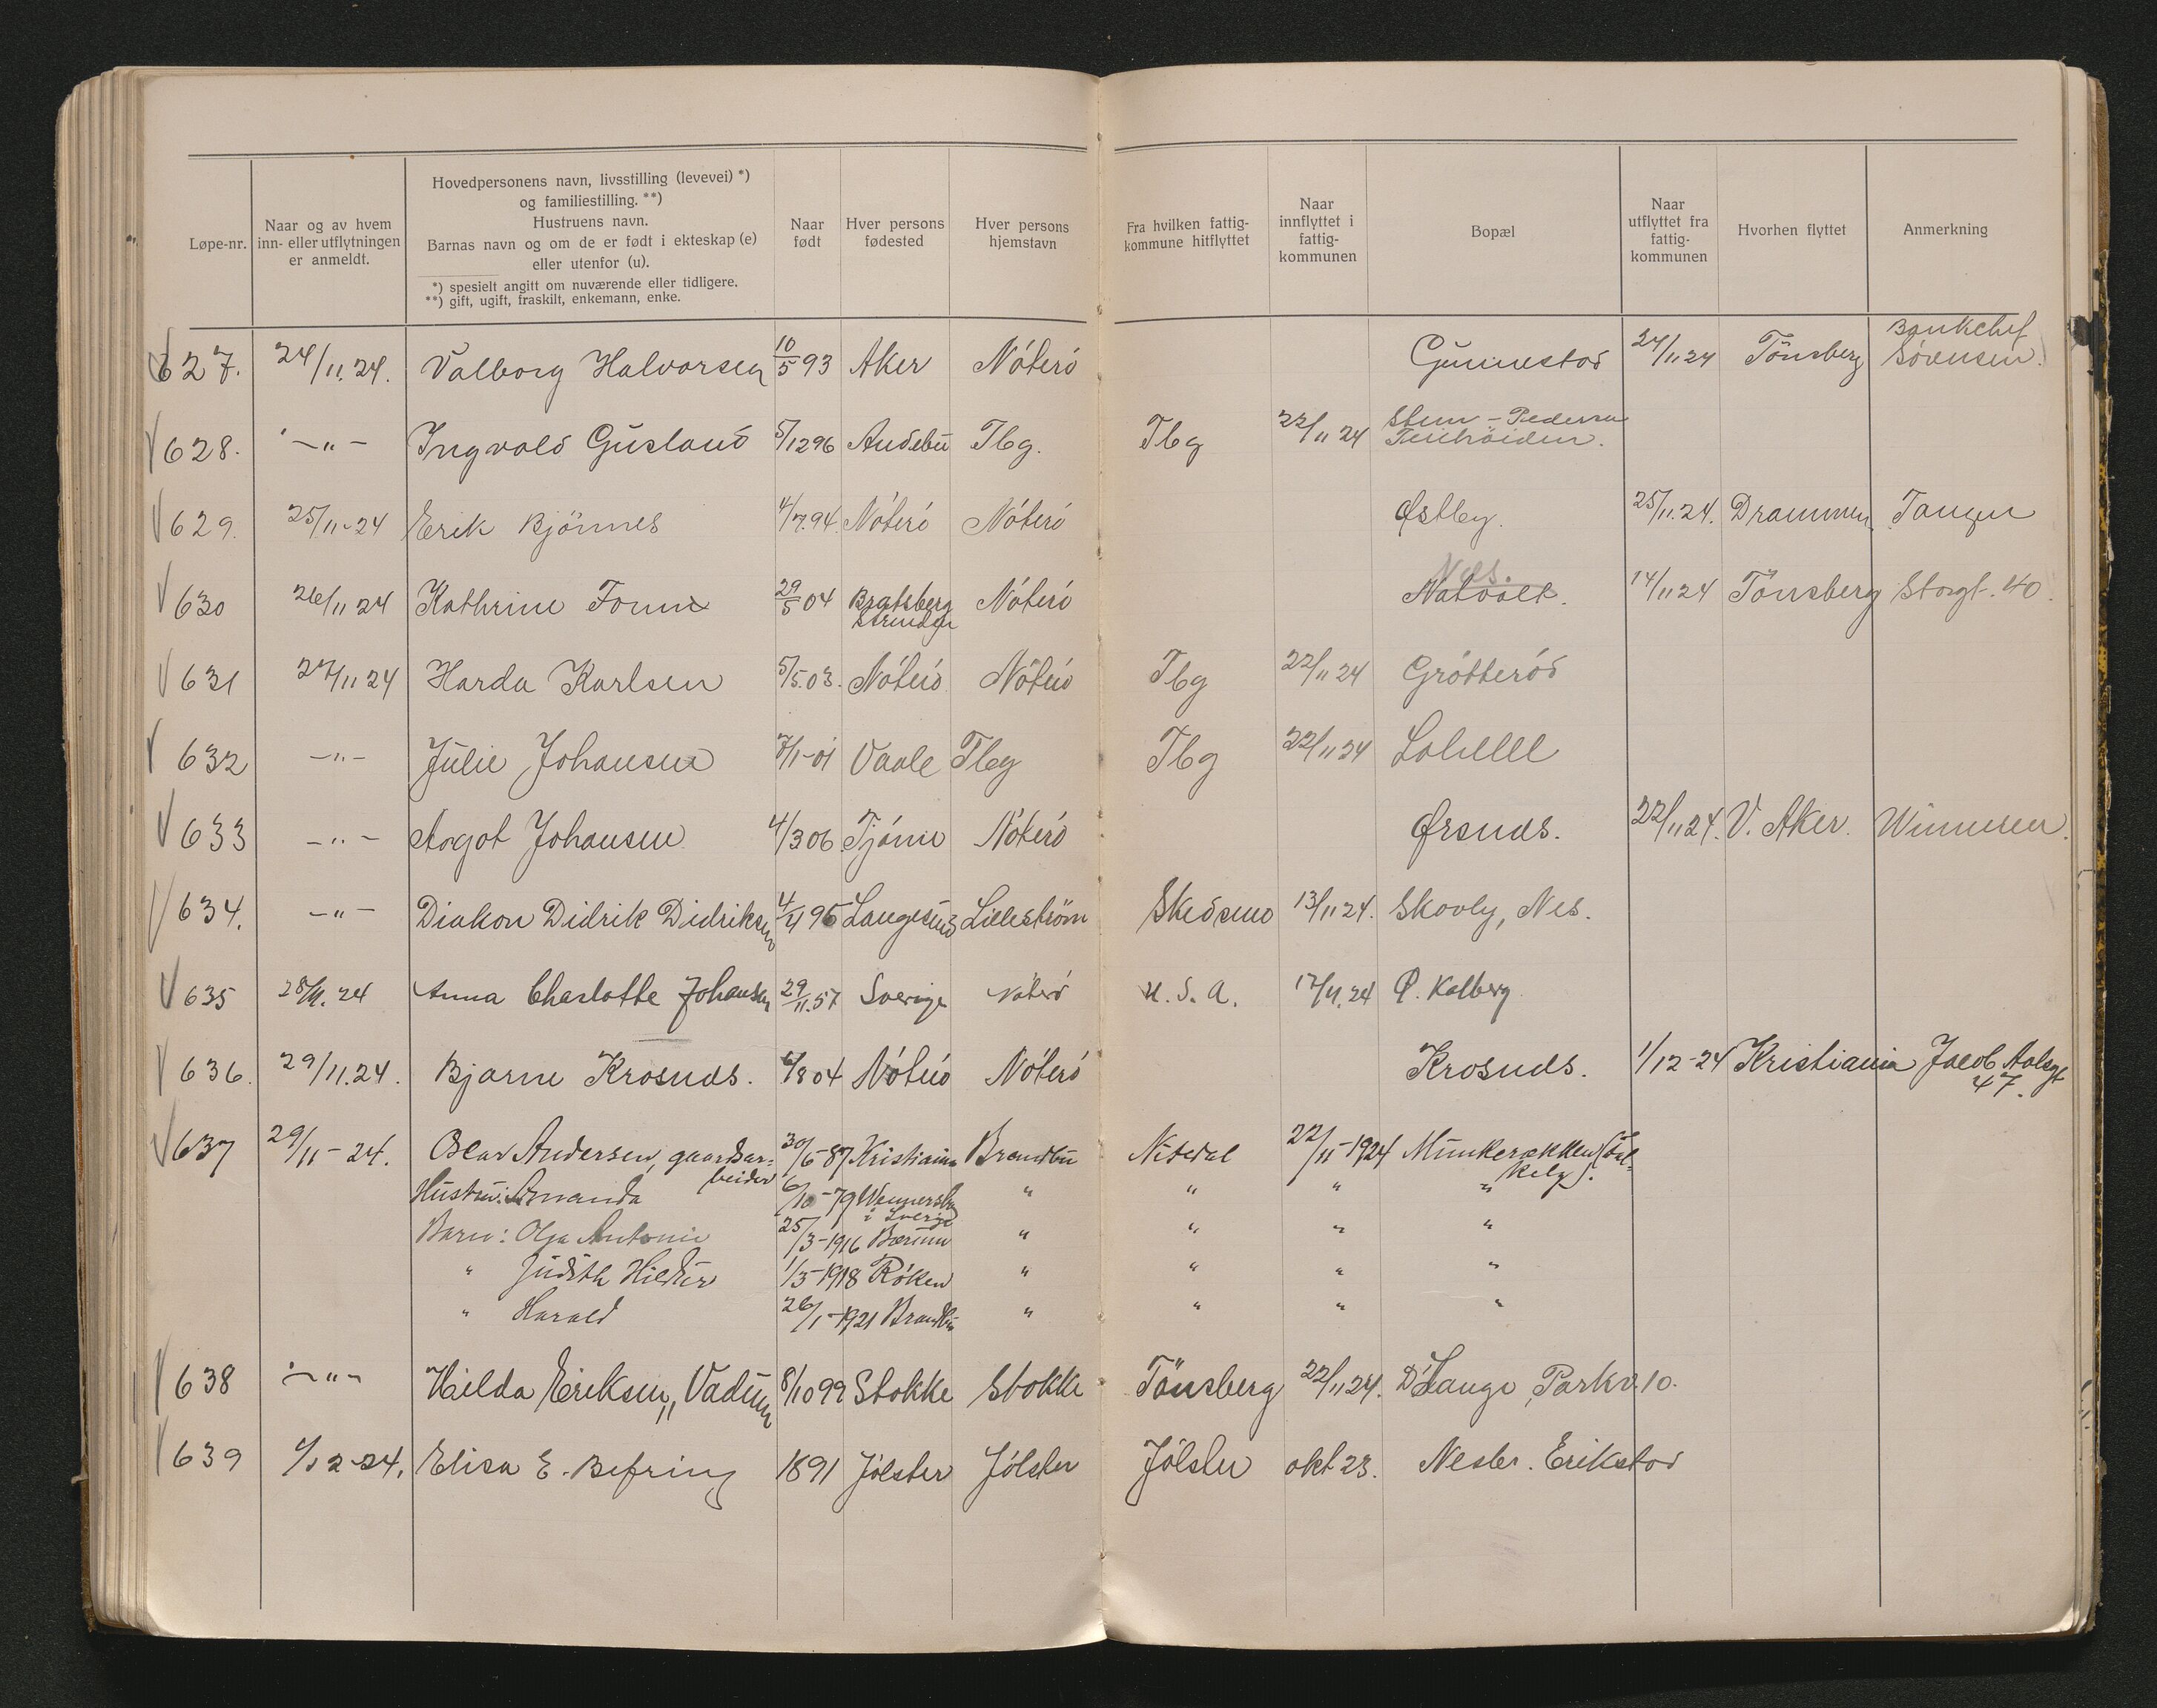 Løpe-nr.
Naar og av hvem
inn- eller utflytningen
er anmeldt.
Hovedpersonens navn, livsstilling (levevei) *)
og familiestilling. **)
Hustruens navn.
Barnas navn og om de er født i ekteskap (e)
eller utenfor (u).
*) spesielt angitt om nuværende eller tidligere.
**) gift, ugift, fraskilt, enkemann, enke.
Naar
født
Hver persons
fødested
Hver persons
hjemstavn
Fra hvilken fattig-
kommune hitflyttet
Naar
innflyttet i
fattig-
kommunen
Bopæl
Naar
utflyttet fra
fattig-
kommunen
Hvorhen flyttet
Anmerkning
627. 24/11.24. Valborg Halvorsen 10/5 93 Aker Nóteró Gunnestad 24/11 24 Tönsberg Bankchef
Sörensen.
628. -"- Ingvald Gusland 5/12 96 Andebu Tbg. Tbg 22/11 24 - Pedersen
629. 25/11-24 Erik Bjönnes 4/7.94. Nóteró Nóteró Østby. 25/11.24. Drammen Tangen
630 26/11 24 Kathrine 29/5 04 Bratsberg
Strinden Nóteró Nes.
14/11 24 Tönsberg Storgt. 40.
631 27/11 24 Harda Karlsen 5/5.03. Nóteró Nóteró Tbg 22/11 24 Grótteród
632 -"- Julie Johansen 7/1-01 Vaale Tbg Tbg 22/11 24
633 -"- Aagot Johansen 4/3 06. Tjóme Nóteró Ørsnes. 22/11 24. V. Aker.
634. -"- Diakon Didrik Didriksen 4/11 95 Langesund Lilleström Skedsmo 13/11 24. Skovly, Nes.
635 28/11. 24 Anna Charlotte Johansen 29/11.57 Sverige Nóteró U.S.A. 17/11.24 Ö. Kolberg
636. 29/11.24. Bjarne Krosnes. 6/8 04 Nóteró Nóteró Krosnes. 1/12-24 Kristiania Jacob Aalsgt
47.
637 29/11-24. Oscar Andersen, gaardsar-
beider 30/6-87 Kristiania Brandbu Nitedal 22/11-1924 Munkerekken
Hustru: Amanda 6/10-79 Wennersbg
i Sverige " " " "
Barn: Olga Antonie 25/3-1916 Bærum " " " "
" Judith Hildur 1/3-1918 Róken " " " "
" Harald 26/1-1921 Brandbu " " " "
638 -"- Hilda Eriksen, Vadum 8/10 99 Stokke Stokke Tönsberg 22/11 24. Dr Lange, Parkv. 10.
639 1/12-24. Elisa E. Befring 1891 Jólster Jólster Jólster okt 23. Nesbr. Erikstad